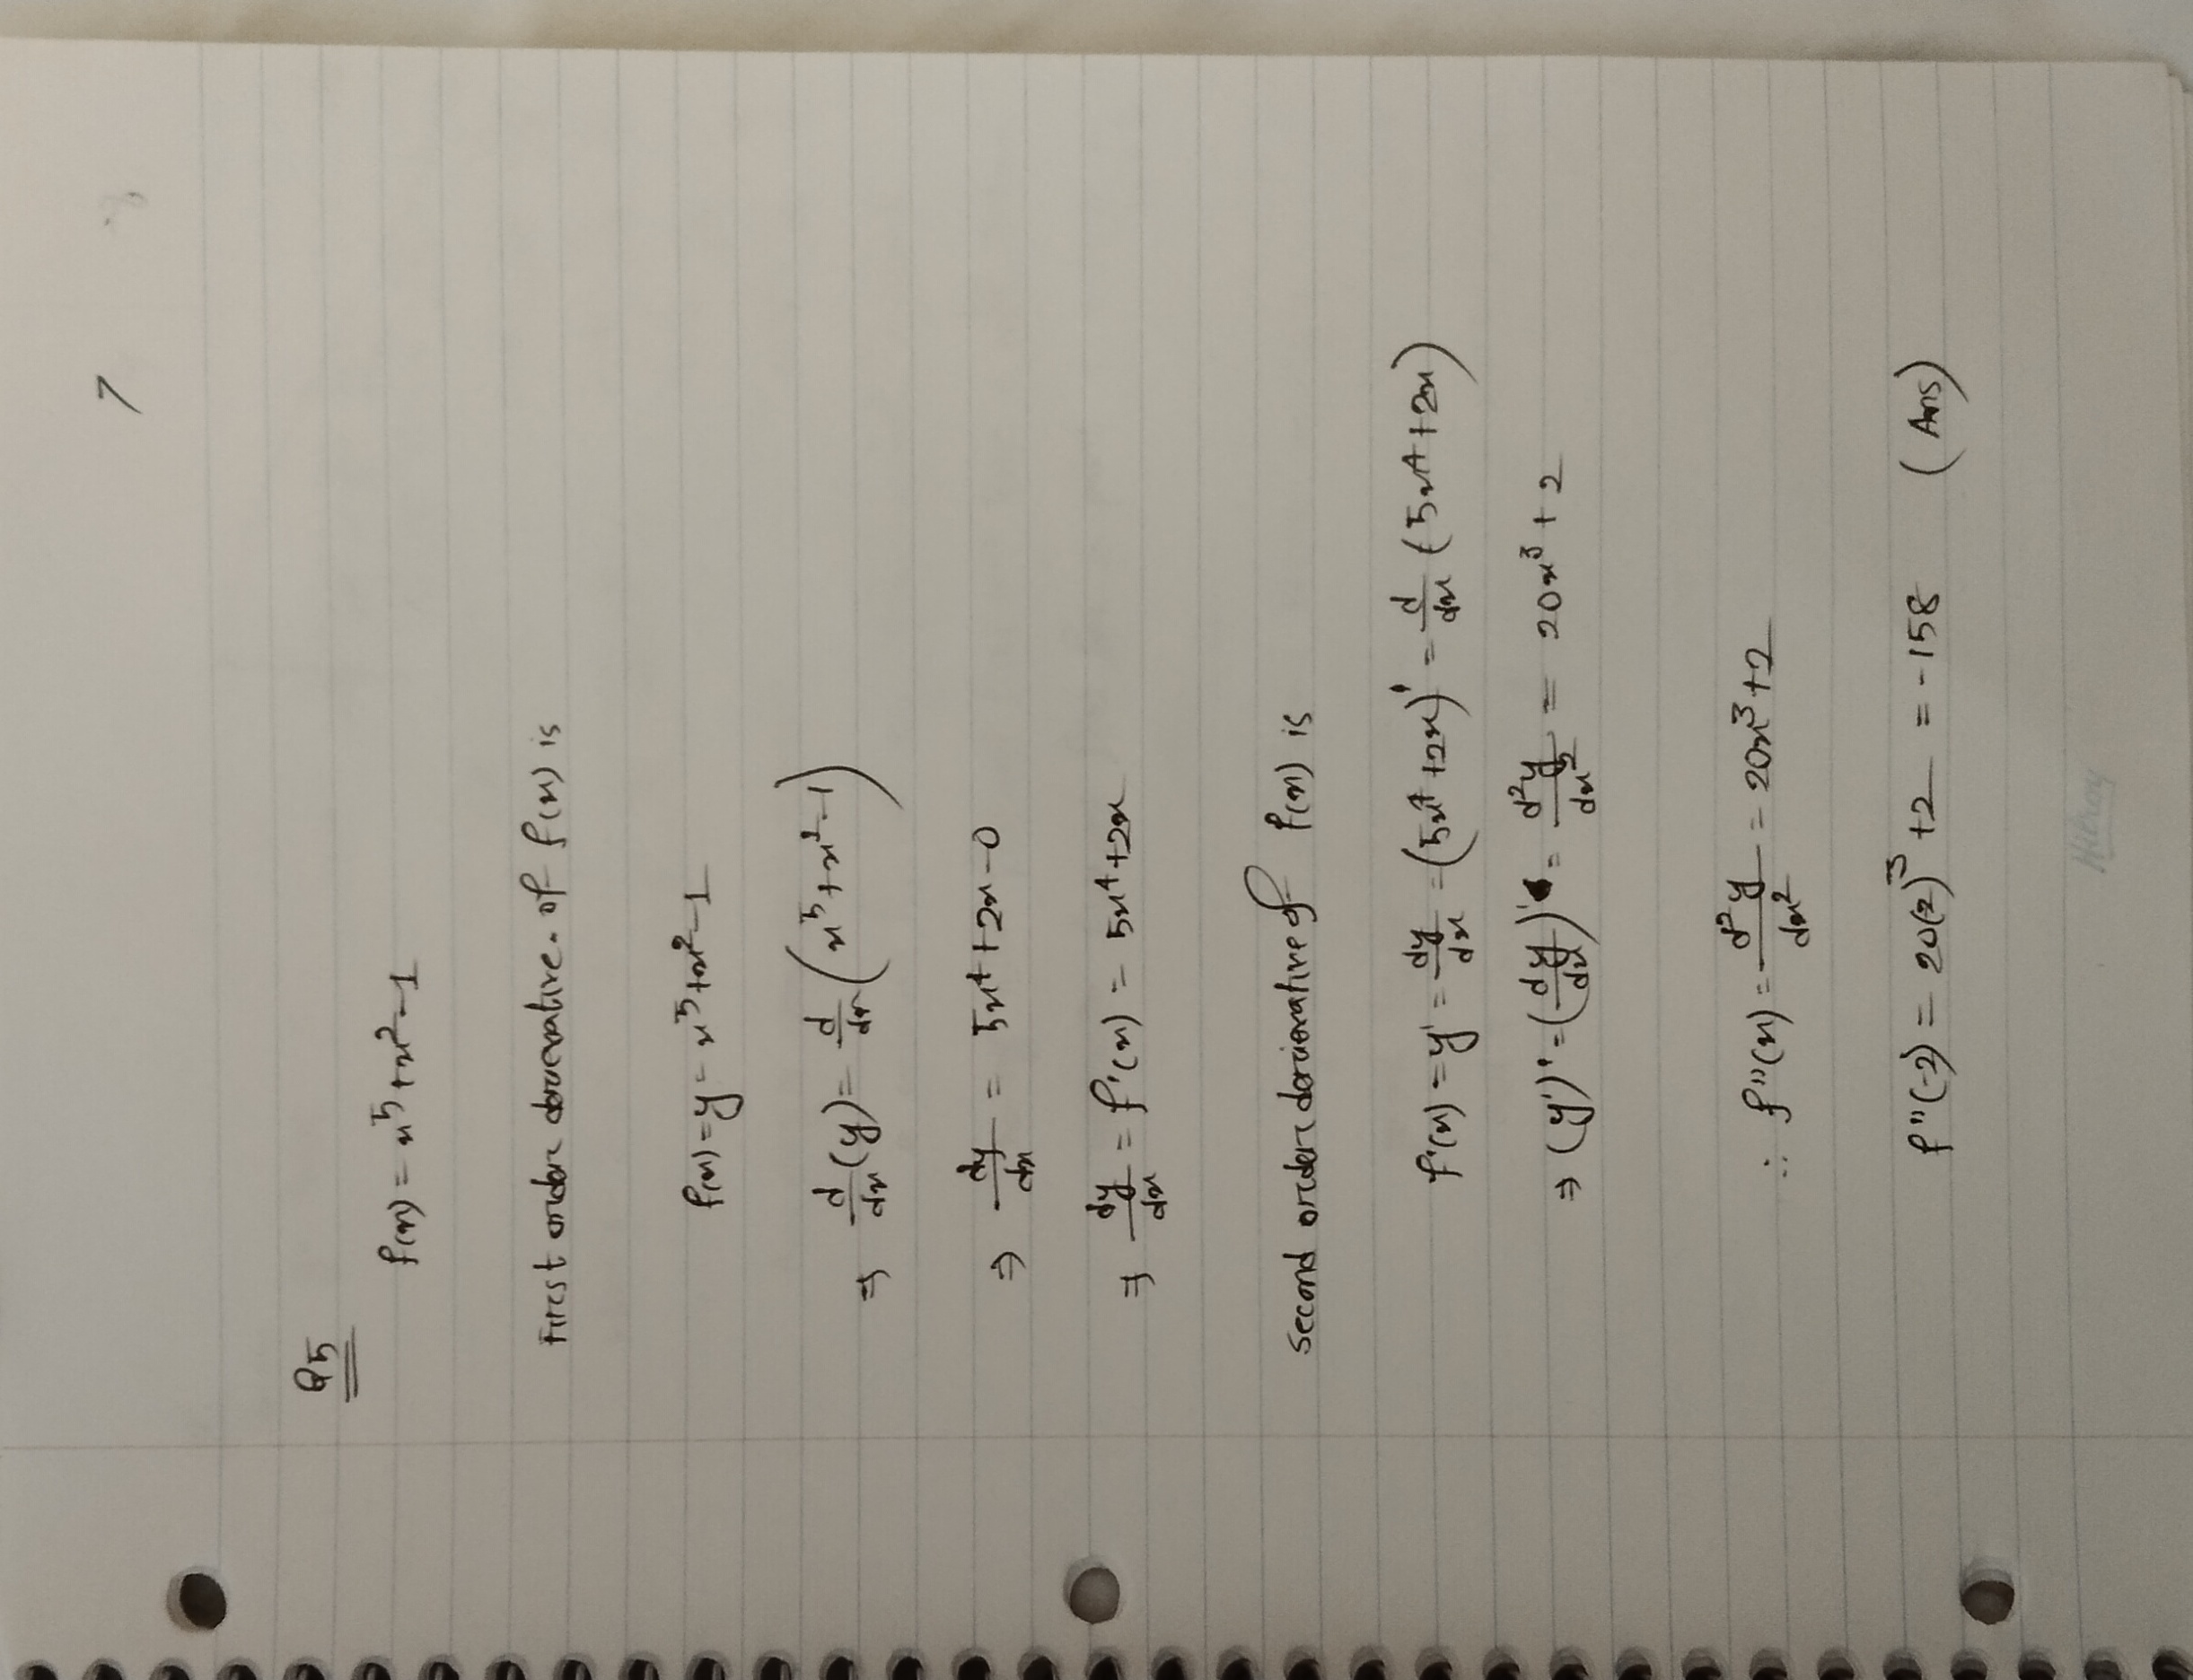 7
Q5
f(x) = x⁵ + x² - 1
First order derievative. of f(x) is
f(x) = y = x⁵ + x² - 1
⇒ d/dx (y) = d/dx (x⁵ + x² - 1)
⇒ dy/dx = 5x⁴ + 2x - 0
⇒ dy/dx = f'(x) = 5x⁴ + 2x
Second order derievative of f(x) is
f'(x) = y' = dy/dx = (5x⁴ + 2x)' = d/dx (5x⁴ + 2x)
⇒ (y')' = (dy/dx)' = d²y/dx² = 20x³ + 2
∴ f''(x) = d²y/dx² = 20x³ + 2
f''(-2) = 20(2)³ + 2 = -158 (Ans)
Hilroy